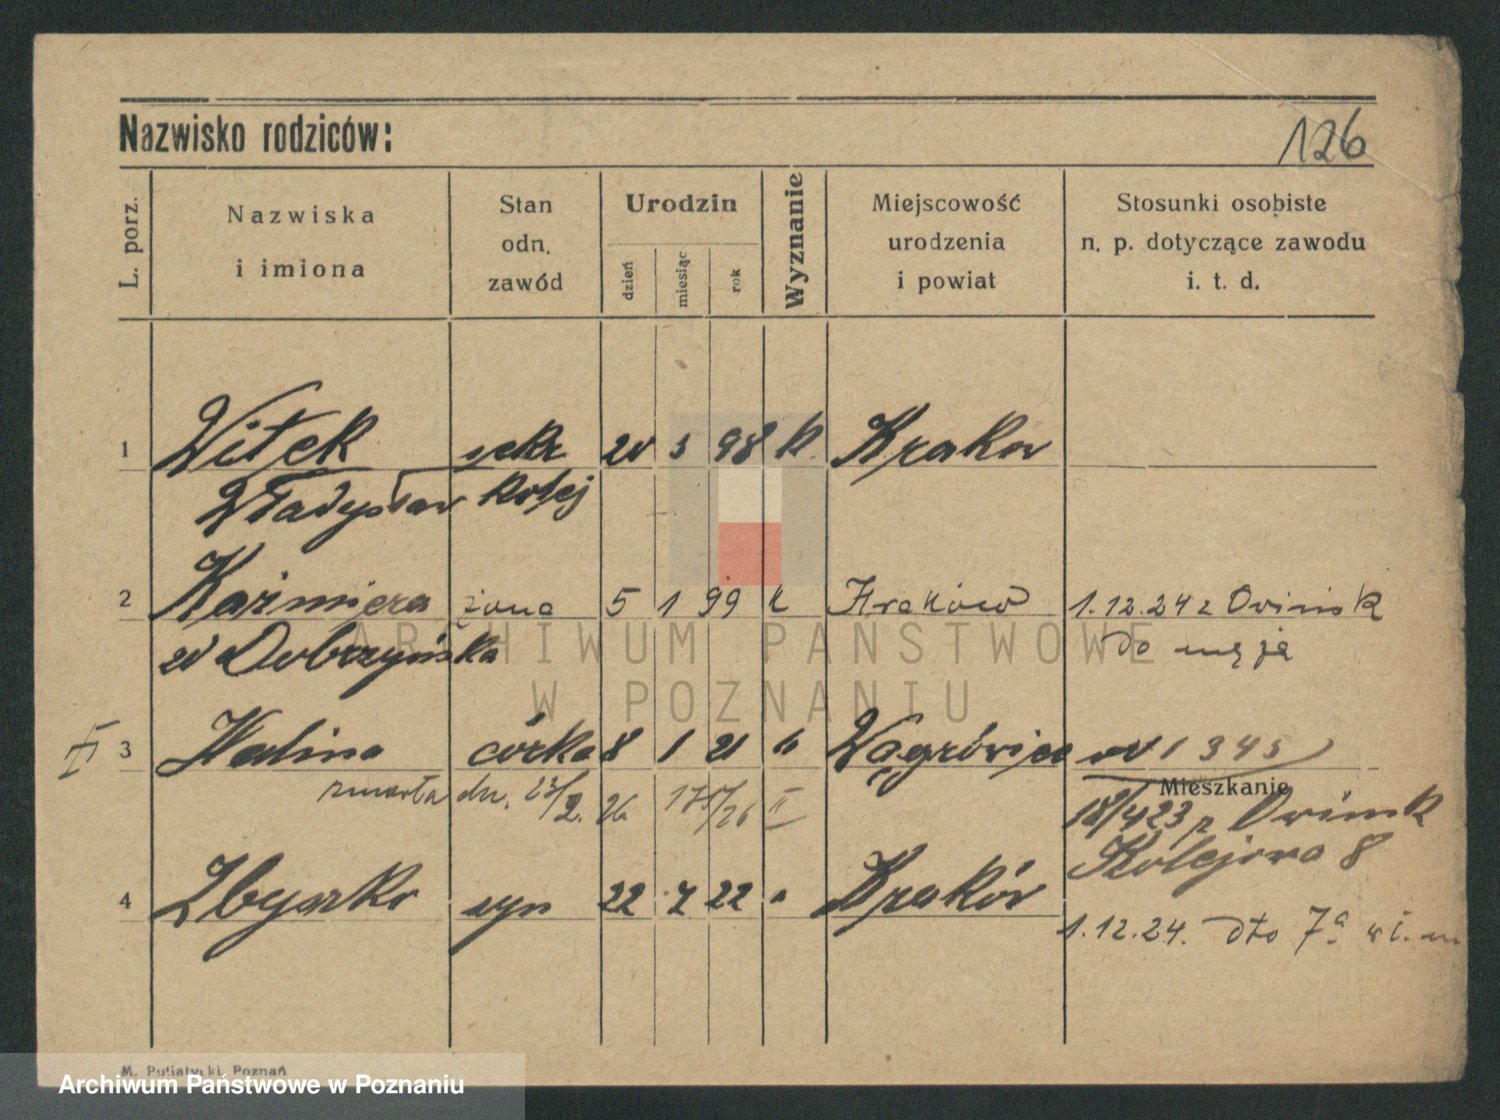 Nazwisko rodziców:
126
L. porz.
Nazwiska
i imiona
Stan
odn.
zawód
Urodzin
dzień
miesiąc
rok
Wyznanie
Miejscowość
urodzenia
i powiat
Stosunki osobiste
n. p. dotyczące zawodu
i. t. d.
1 Witek sekr 20 3 98 k. Kraków
Władysław kolej
2 Kaźmiera żona 5 1 99 k Kraków 1.12.24 z Owińsk
w Dobrzyńska do męża
II 3 Halina córka 8 1 21 k Wągrówiec 1345
zmarła dn. 23/2. 26. 175/26 II
Mieszkanie
18/4 23 z Owińsk
Kolejowa 8
4 Zbyszko syn 22 7 22 " Kraków
1.12.24. dto 7a
ARCHIWUM PAŃSTWOWE
W POZNANIU
M. Putiatycki, Poznań
Archiwum Państwowe w Poznaniu